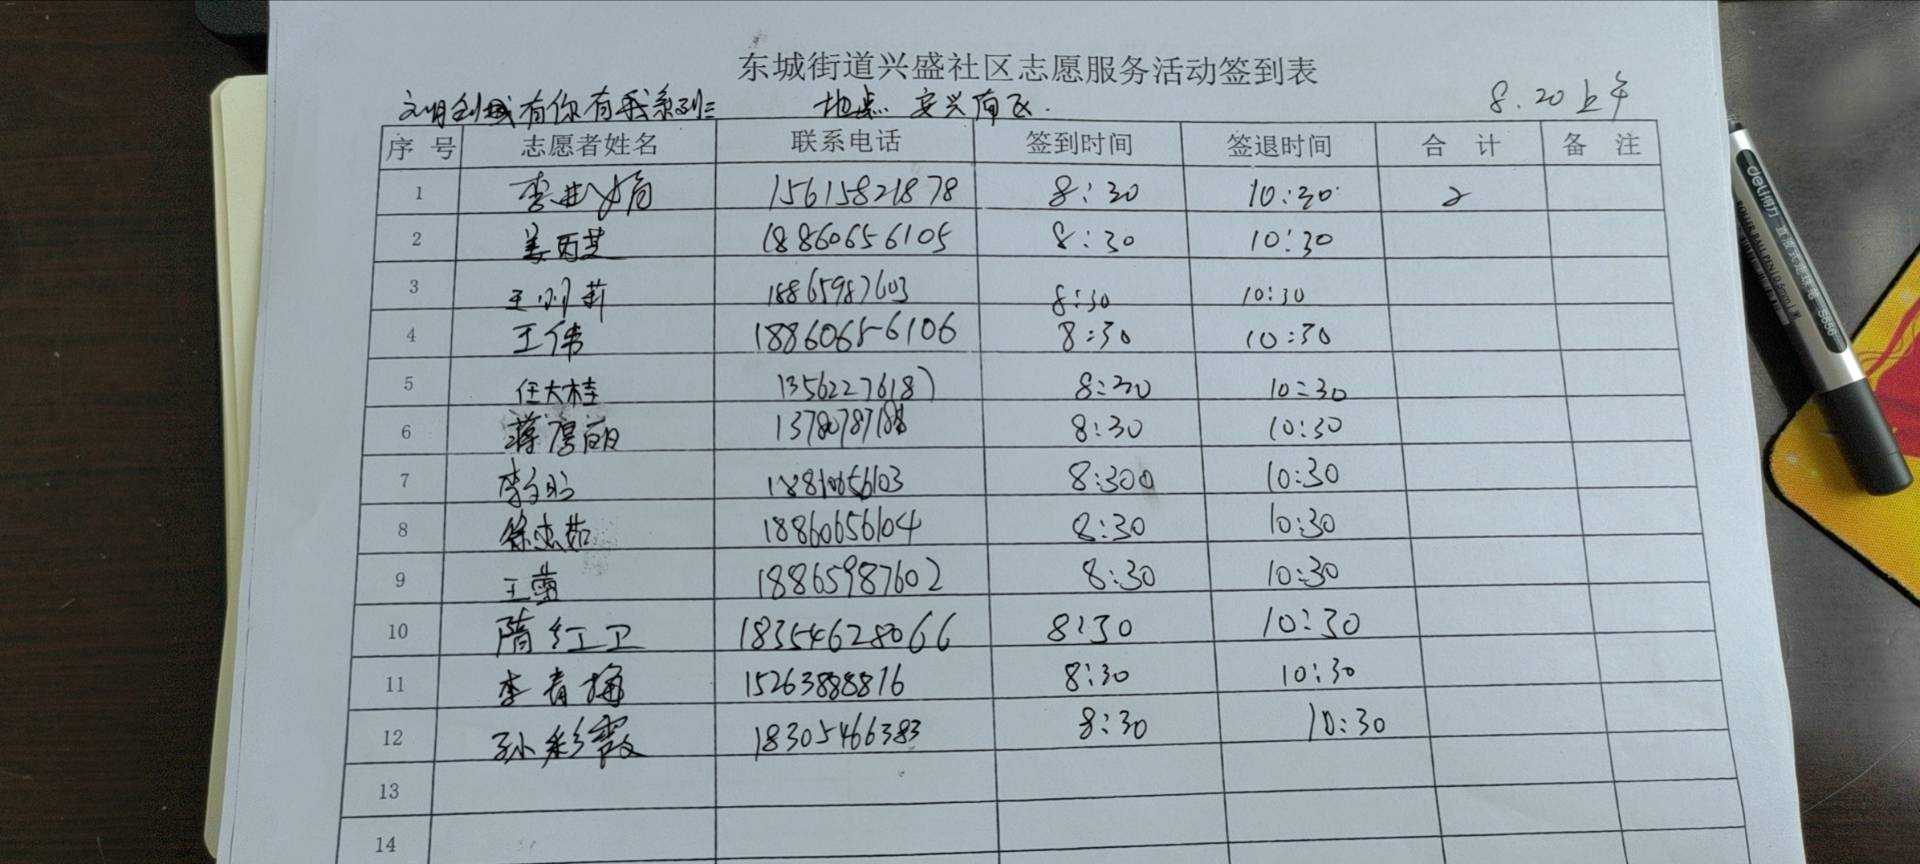 东城街道兴盛社区志愿服务活动签到表
文明创城有你有我系列二 地点 安兴南区. 8.20上午
序 号 志愿者姓名 联系电话 签到时间 签退时间 合 计 备 注
1 李 娟 15615821878 8:30 10:30 2
2 姜丙芝 18860656105 8:30 10:30
3 王 莉 18865987603 8:30 10:30
4 王伟 18860656106 8:30 10:30
5 任大桂 13562276187 8:30 10:30
6 蒋 丽 8:30 10:30
7 李 8:300 10:30
8 徐 茹 18860656104 8:30 10:30
9 王蕾 18865987602 8:30 10:30
10 隋红卫 18354628066 8:30 10:30
11 李青梅 15263888876 8:30 10:30
12 孙彩霞 18305466383 8:30 10:30
13
14
deli得力